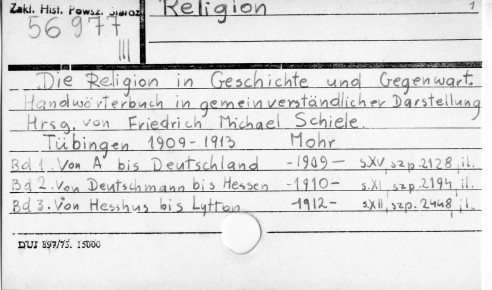 Zakl. Hist. Powsz. Staroż
Religion 1
56977
III
Die Religion in Geschichte und Gegenwart.
Handwörterbuch in gemeinverständlicher Darstellung
Hrsg. von Friedrich Michael Schiele
Tübingen 1909-1913 Mohr
Bd 1. Von A bis Deutschland -1909- s.XV, szp. 2128, il.
Bd 2. Von Deutschmann bis Hessen -1910- s.XI, szp. 2194, il.
Bd 3. Von Hesshus bis Lytton -1912- s.XII, szp. 2448, il.
DUJ 897/73. 15000